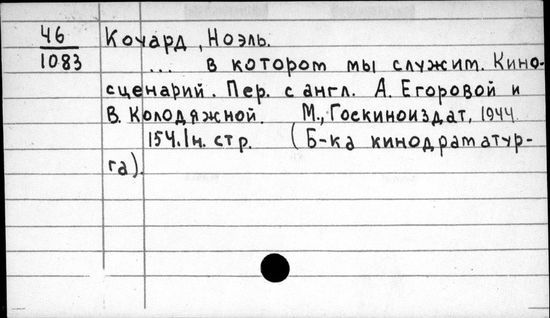 46
1083
Коуард, Ноэль.
... в котором мы служим. Кино-
сценарий. Пер. с англ. А. Егоровой и
В. Колодяжной. М., Госкиноиздат, 1944.
154. 1н. стр. (Б-ка кинодраматур-
га).